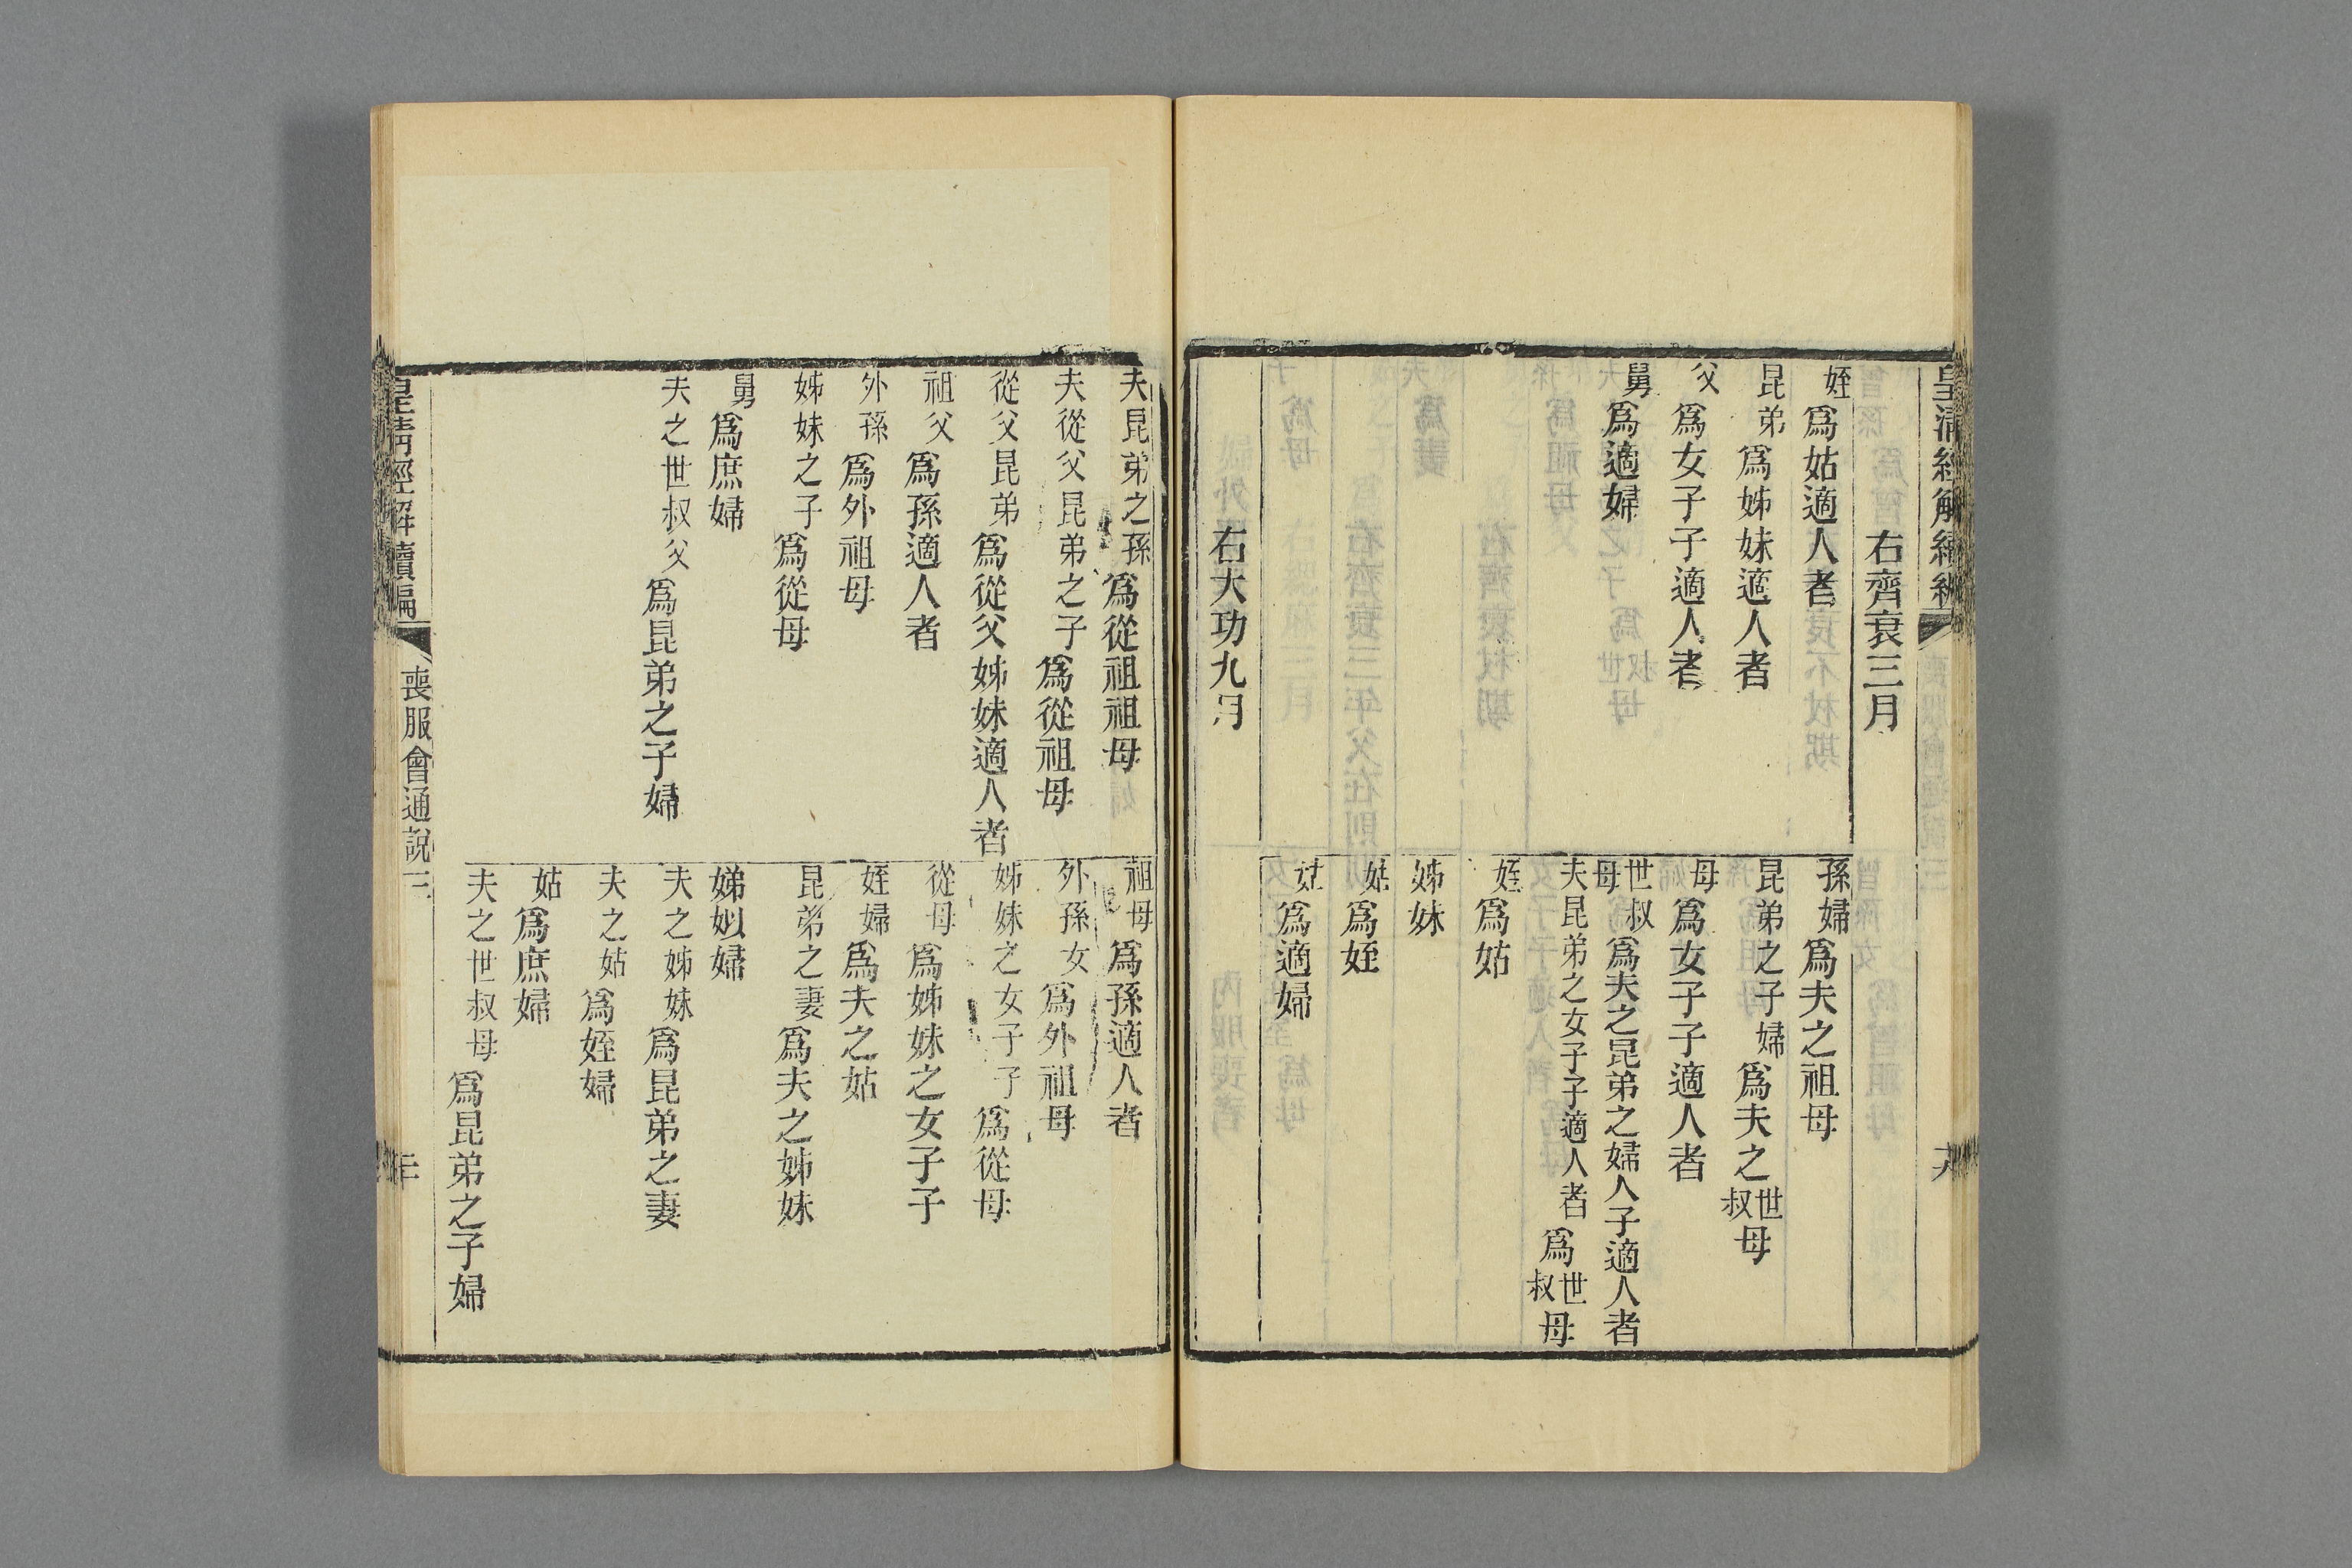 皇清經解續編 喪服會通說三
右齊衰三月
姪爲姑適人者
昆弟爲姊妹適人者
父爲女子子適人者
舅爲適婦
孫婦爲夫之祖母
昆弟之子婦爲夫之世叔母
母爲女子子適人者
世叔母爲夫之昆弟之婦人子適人者
夫昆弟之女子子適人者爲世叔母
姪爲姑
姊妹
姑爲姪
姑爲適婦
右大功九月
夫昆弟之孫爲從祖祖母
夫從父昆弟之子爲從祖母
從父昆弟爲從父姊妹適人者
祖父爲孫適人者
外孫爲外祖母
姊妹之子爲從母
舅爲庶婦
夫之世叔父爲昆弟之子婦
祖母爲孫適人者
外孫女爲外祖母
姊妹之女子子爲從母
從母爲姊妹之女子子
姪婦爲夫之姑
昆弟之妻爲夫之姊妹
娣姒婦
夫之姊妹爲昆弟之妻
夫之姑爲姪婦
姑爲庶婦
夫之世叔母爲昆弟之子婦
皇清經解續編 喪服會通說三